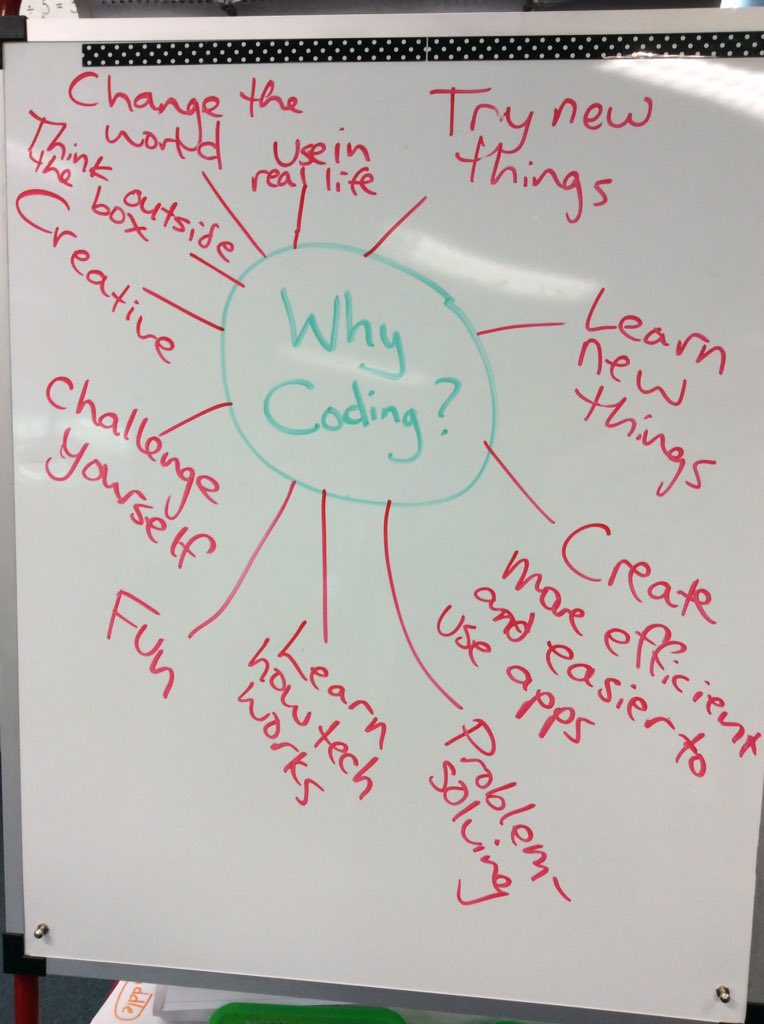 Why
Coding?
Change the
world
Use in
real life
Try new
things
Learn
new
things
Create
more efficient
and easier to
use apps
Problem-
solving
Learn
how tech
works
Fun
Challenge
yourself
Creative
Think outside
the box